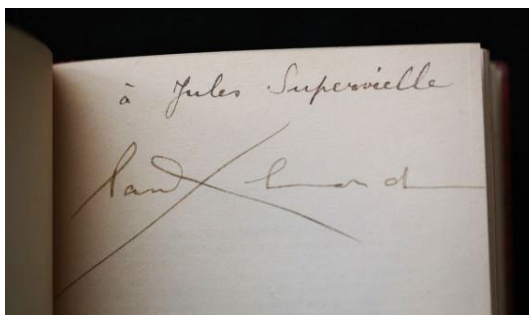 à Jules Supervielle
Paul Eluard